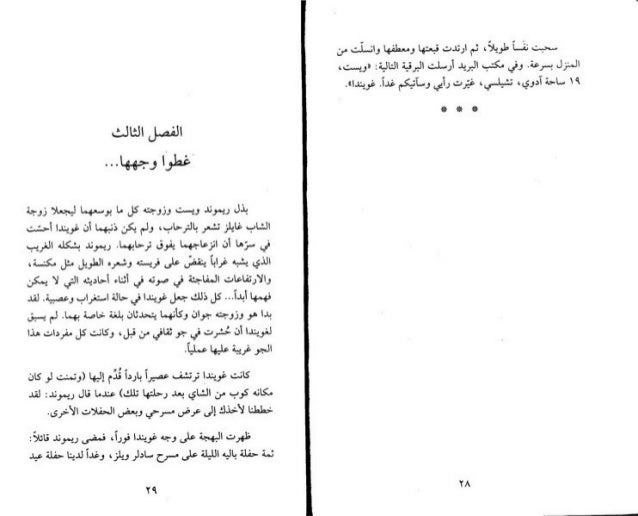 سحبت نفساً طويلاً، ثم ارتدت قبعتها ومعطفها وانسلّت من
المنزل بسرعة. وفي مكتب البريد أرسلت البرقية التالية: «ويست،
١٩ ساحة آدوي، تشيلسي، غيّرت رأيي وسآتيكم غداً. غويندا».
* * *
٢٨
الفصل الثالث
غطوا وجهها...
بذل ريموند ويست وزوجته كل ما بوسعهما ليجعلا زوجة
الشاب غايلز تشعر بالترحاب، ولم يكن ذنبهما أن غويندا أحسّت
في سرّها أن انزعاجهما يفوق ترحابهما. ريموند بشكله الغريب
الذي يشبه غراباً ينقضّ على فريسته وشعره الطويل مثل مكنسة،
والارتفاعات المفاجئة في صوته في أثناء أحاديثه التي لا يمكن
فهمها أبداً... كل ذلك جعل غويندا في حالة استغراب وعصبية. لقد
بدا هو وزوجته جوان وكأنهما يتحدثان بلغة خاصة بهما. لم يسبق
لغويندا أن حُشرت في جو ثقافي من قبل، وكانت كل مفردات هذا
الجو غريبة عليها عملياً.
كانت غويندا ترتشف عصيراً بارداً قُدِّم إليها (وتمنت لو كان
مكانه كوب من الشاي بعد رحلتها تلك) عندما قال ريموند: لقد
خططنا لأخذك إلى عرض مسرحي وبعض الحفلات الأخرى.
ظهرت البهجة على وجه غويندا فوراً، فمضى ريموند قائلاً:
ثمة حفلة باليه الليلة على مسرح سادلر ويلز، وغداً لدينا حفلة عيد
٢٩